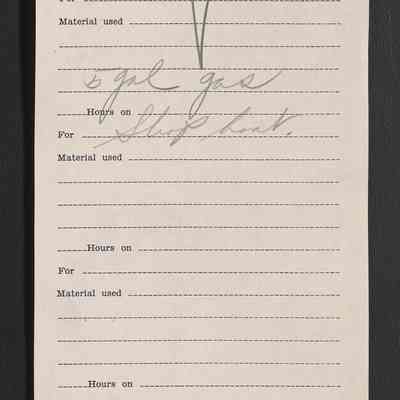 For
Material used
5 gal gas
Hours on
For Shop boat.
Material used
Hours on
For
Material used
Hours on